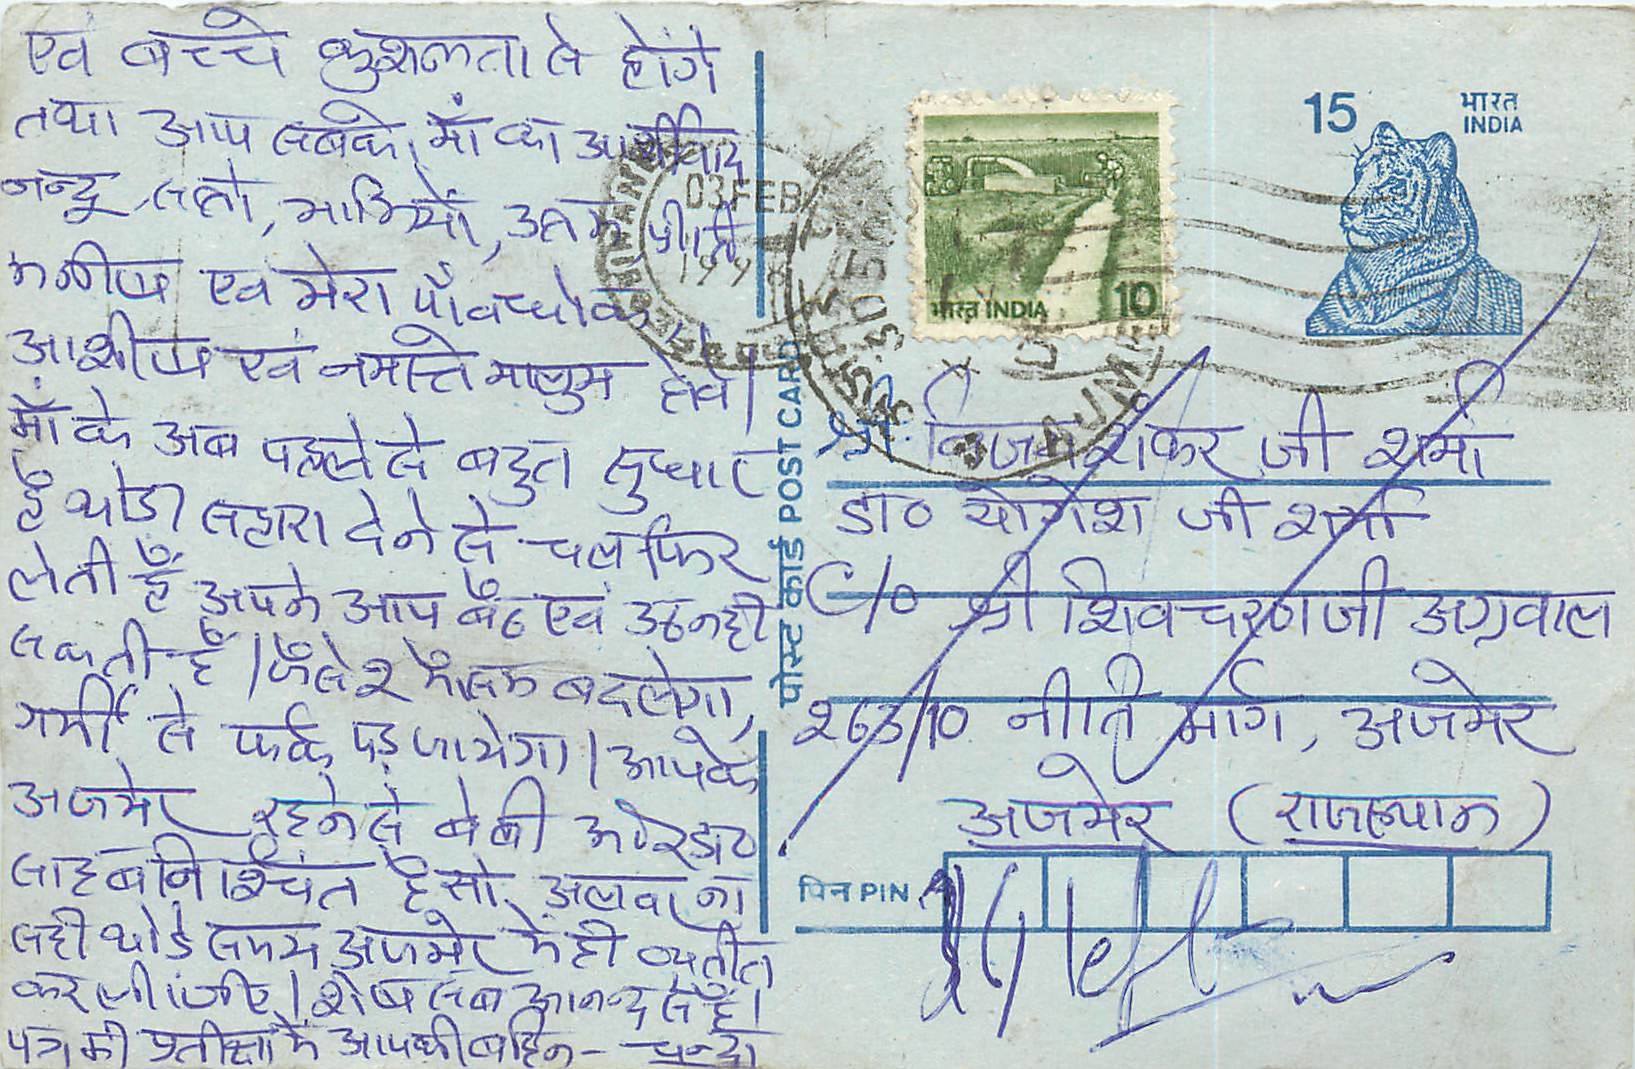 एवं बच्चे कुशलता से होंगे
तथा आप सबको माँ का आर्शीवाद
नन्दू, सन्तो, भाभियों,
मनीष एवं मेरा पाँचों का
आशीष एवं नमस्ते मालुम होवे।
माँ के अब पहले से बहुत सुधार
है थोडा सहारा देने से चल फिर
लेती हैं अपने आप बैठ एवं उठ नही
सकती हैं। जैसे २ मौसम बदलेगा,
गर्मी से फर्क पड़ जायेगा। आपके
अजमेर रहने से बेबी और डा०
साहब निश्चिंत हैं सो अलवर ना
सही थोडे समय अजमेर में ही व्यतीत
कर लीजिए। शेष सब आनन्द से हैं।
पत्र की प्रतीक्षा में आपकी बहिन - चन्द्रा
03 FEB
1998
भारत INDIA 10
15 भारत
INDIA
पोस्ट कार्ड POST CARD
श्री विजय शंकर जी शर्मा
डा० योगेश जी शर्मा
C/o श्री शिवचरण जी अग्रवाल
263/10 नीति मार्ग, अजमेर
अजमेर (राजस्थान)
पिन PIN